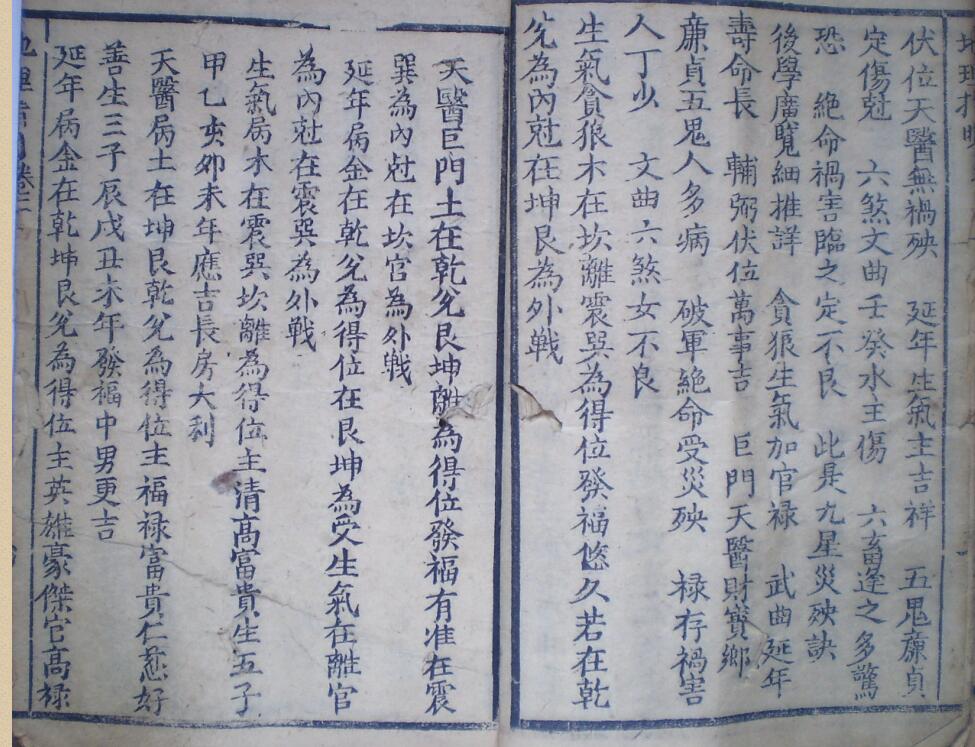 伏位天醫無禍殃　延年生氣主吉祥　五鬼廉貞
定傷尅　六煞文曲壬癸水主傷　六畜逢之多驚
恐　絶命禍害臨之定不良　此是九星災殃訣
後學廣覽細推詳　貪狼生氣加官禄　武曲延年
壽命長　輔弼伏位萬事吉　巨門天醫財寳鄉
廉貞五鬼人多病　破軍絶命受災殃　禄存禍害
人丁少　文曲六煞女不良
生氣貪狼木在坎離震巽為得位發福悠久若在乾
兊為内尅在坤艮為外戰
天醫巨門土在乾兊艮坤離為得位發福有准在震
巽為内尅在坎宫為外戰
延年病金在乾兊為得位在艮坤為受生氣在離官
為内尅在震巽為外戰
生氣病木在震巽坎離為得位主清高富貴生五子
甲乙亥夘未年應吉長房大利
天醫病土在坤艮乾兊為得位主福禄富貴仁慈好
善生三子辰戌丑未年發福中男更吉
延年病金在乾坤艮兊為得位主英雄豪傑官高禄